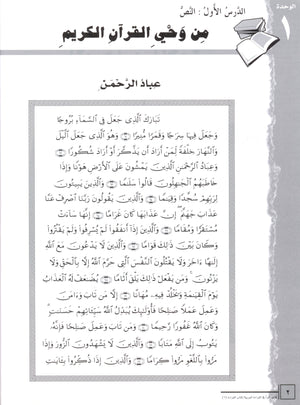 الوحدة
١
الدرس الأول : النص
من وحي القرآن الكريم
عباد الرحمن
تَبَارَكَ ٱلَّذِى جَعَلَ فِى ٱلسَّمَآءِ بُرُوجًا
وَجَعَلَ فِيهَا سِرَٰجًا وَقَمَرًا مُّنِيرًا ۝ وَهُوَ ٱلَّذِى جَعَلَ ٱلَّيْلَ
وَٱلنَّهَارَ خِلْفَةً لِّمَنْ أَرَادَ أَن يَذَّكَّرَ أَوْ أَرَادَ شُكُورًا ۝
وَعِبَادُ ٱلرَّحْمَٰنِ ٱلَّذِينَ يَمْشُونَ عَلَى ٱلْأَرْضِ هَوْنًا وَإِذَا
خَاطَبَهُمُ ٱلْجَٰهِلُونَ قَالُوا۟ سَلَٰمًا ۝ وَٱلَّذِينَ يَبِيتُونَ
لِرَبِّهِمْ سُجَّدًا وَقِيَٰمًا ۝ وَٱلَّذِينَ يَقُولُونَ رَبَّنَا ٱصْرِفْ عَنَّا
عَذَابَ جَهَنَّمَ ۖ إِنَّ عَذَابَهَا كَانَ غَرَامًا ۝ إِنَّهَا سَآءَتْ
مُسْتَقَرًّا وَمُقَامًا ۝ وَٱلَّذِينَ إِذَآ أَنفَقُوا۟ لَمْ يُسْرِفُوا۟ وَلَمْ يَقْتُرُوا۟
وَكَانَ بَيْنَ ذَٰلِكَ قَوَامًا ۝ وَٱلَّذِينَ لَا يَدْعُونَ مَعَ ٱللَّهِ
إِلَٰهًا ءَاخَرَ وَلَا يَقْتُلُونَ ٱلنَّفْسَ ٱلَّتِى حَرَّمَ ٱللَّهُ إِلَّا بِٱلْحَقِّ وَلَا
يَزْنُونَ ۚ وَمَن يَفْعَلْ ذَٰلِكَ يَلْقَ أَثَامًا ۝ يُضَٰعَفْ لَهُ ٱلْعَذَابُ
يَوْمَ ٱلْقِيَٰمَةِ وَيَخْلُدْ فِيهِۦ مُهَانًا ۝ إِلَّا مَن تَابَ وَءَامَنَ
وَعَمِلَ عَمَلًا صَٰلِحًا فَأُو۟لَٰٓئِكَ يُبَدِّلُ ٱللَّهُ سَيِّـَٔاتِهِمْ حَسَنَٰتٍ ۗ
وَكَانَ ٱللَّهُ غَفُورًا رَّحِيمًا ۝ وَمَن تَابَ وَعَمِلَ صَٰلِحًا فَإِنَّهُۥ
يَتُوبُ إِلَى ٱللَّهِ مَتَابًا ۝ وَٱلَّذِينَ لَا يَشْهَدُونَ ٱلزُّورَ وَإِذَا
مَرُّوا۟ بِٱللَّغْوِ مَرُّوا۟ كِرَامًا ۝ وَٱلَّذِينَ إِذَا ذُكِّرُوا۟ بِـَٔايَٰتِ
٢